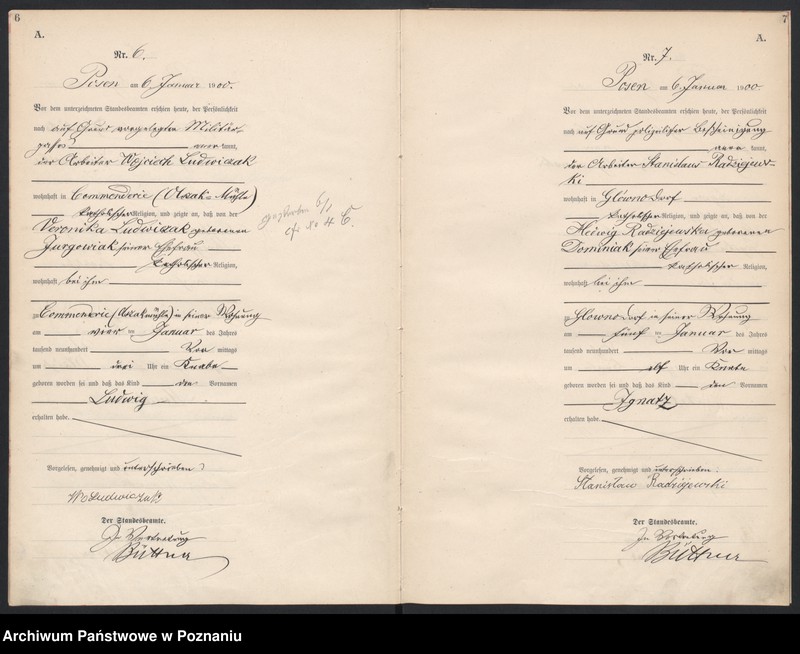 6
A.
Nr. 6.
Posen am 6 Januar 1900.
Vor dem unterzeichneten Standesbeamten erschien heute, der Persönlichkeit
nach auf Grund vorgelegten Militär-
passes anerkannt,
der Arbeiter Wojciech Ludwiczak
wohnhaft in Commenderie
katholischer Religion, und zeigte an, daß von der
Veronika Ludwiczak geborenen
Jurgowiak seiner Ehefrau
katholischer Religion,
wohnhaft bei ihm
Commenderie in seiner Wohnung
am vier ten Januar des Jahres
tausend neunhundert Vor mittags
um drei Uhr ein Knabe
geboren worden sei und daß das Kind den Vornamen
Ludwig
erhalten habe.
Vorgelesen, genehmigt und unterschrieben:
Der Standesbeamte.
In Vertretung
Büttner
7
A.
Nr. 7.
Posen am 6 Januar 1900.
Vor dem unterzeichneten Standesbeamten erschien heute, der Persönlichkeit
nach auf Grund polizeilicher Bescheinigung
anerkannt,
der Arbeiter Stanislaus Radziejews-
ki
wohnhaft in Glowno Dorf
katholischer Religion, und zeigte an, daß von der
Hedwig Radziejewska geborenen
Dominiak seiner Ehefrau
katholischer Religion,
wohnhaft bei ihm
Glowno Dorf in seiner Wohnung
am fünf ten Januar des Jahres
tausend neunhundert Vor mittags
um elf Uhr ein Knabe
geboren worden sei und daß das Kind den Vornamen
Ignatz
erhalten habe.
Vorgelesen, genehmigt und unterschrieben:
Stanisław Radziejewski
Der Standesbeamte.
In Vertretung
Büttner
Archiwum Państwowe w Poznaniu